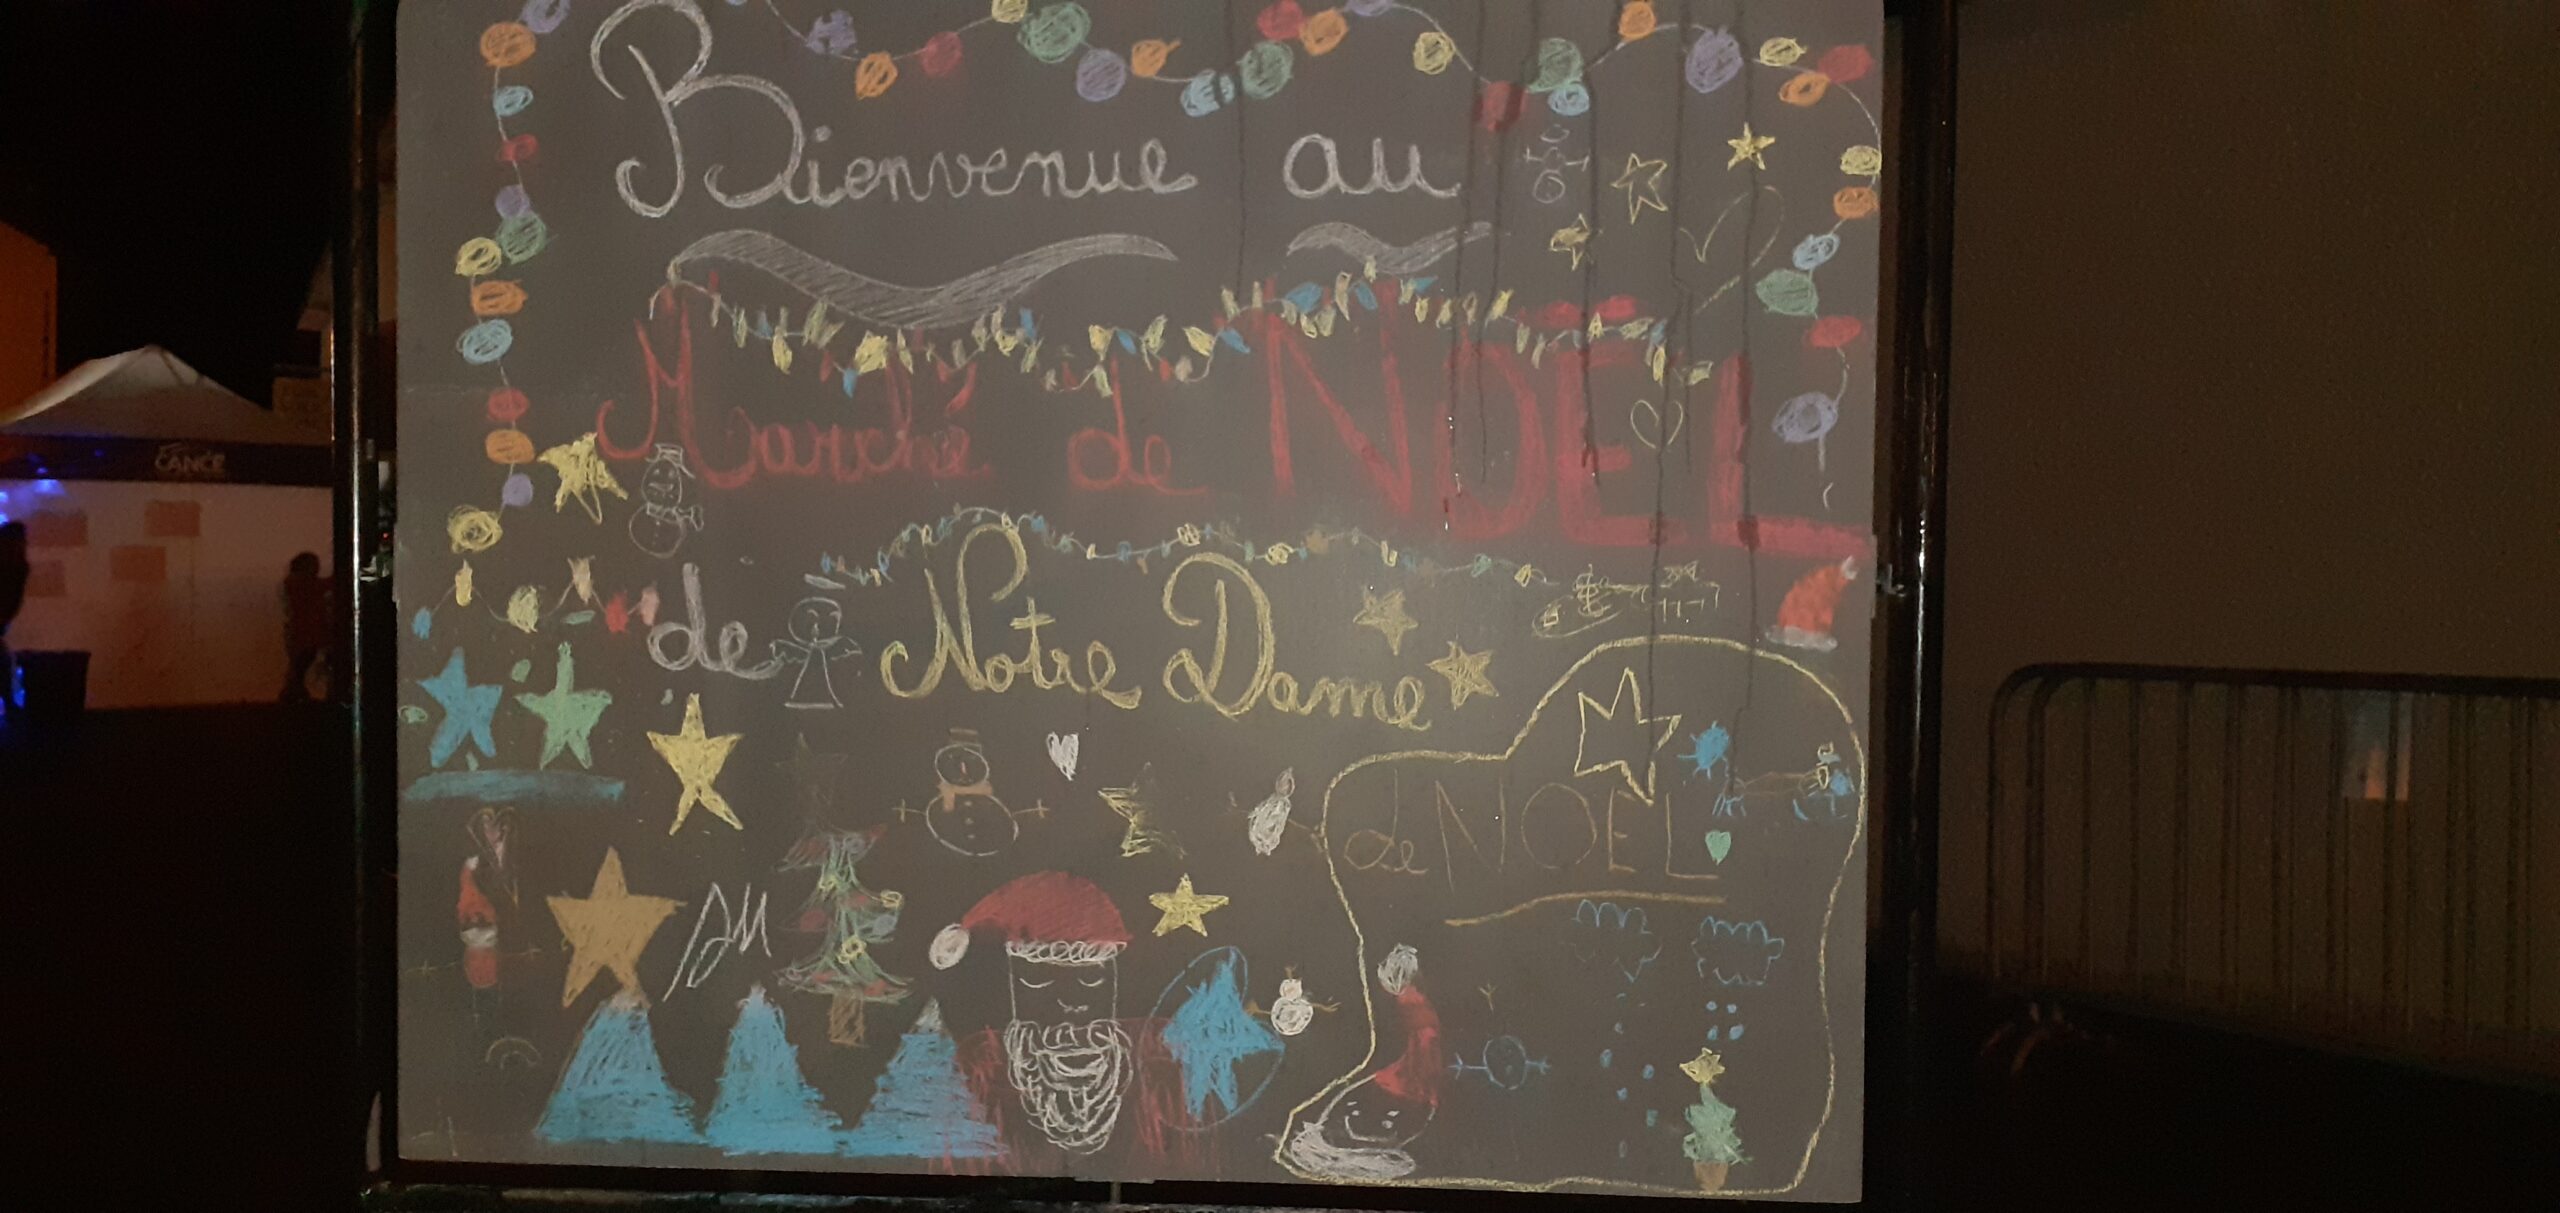 Bienvenue au
Marché de NOËL
de Notre Dame
de NOËL